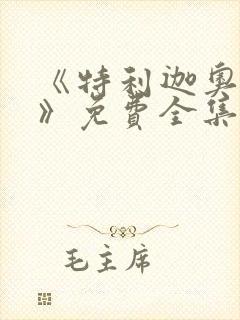 《特利迦奥
》免費全集
毛主席